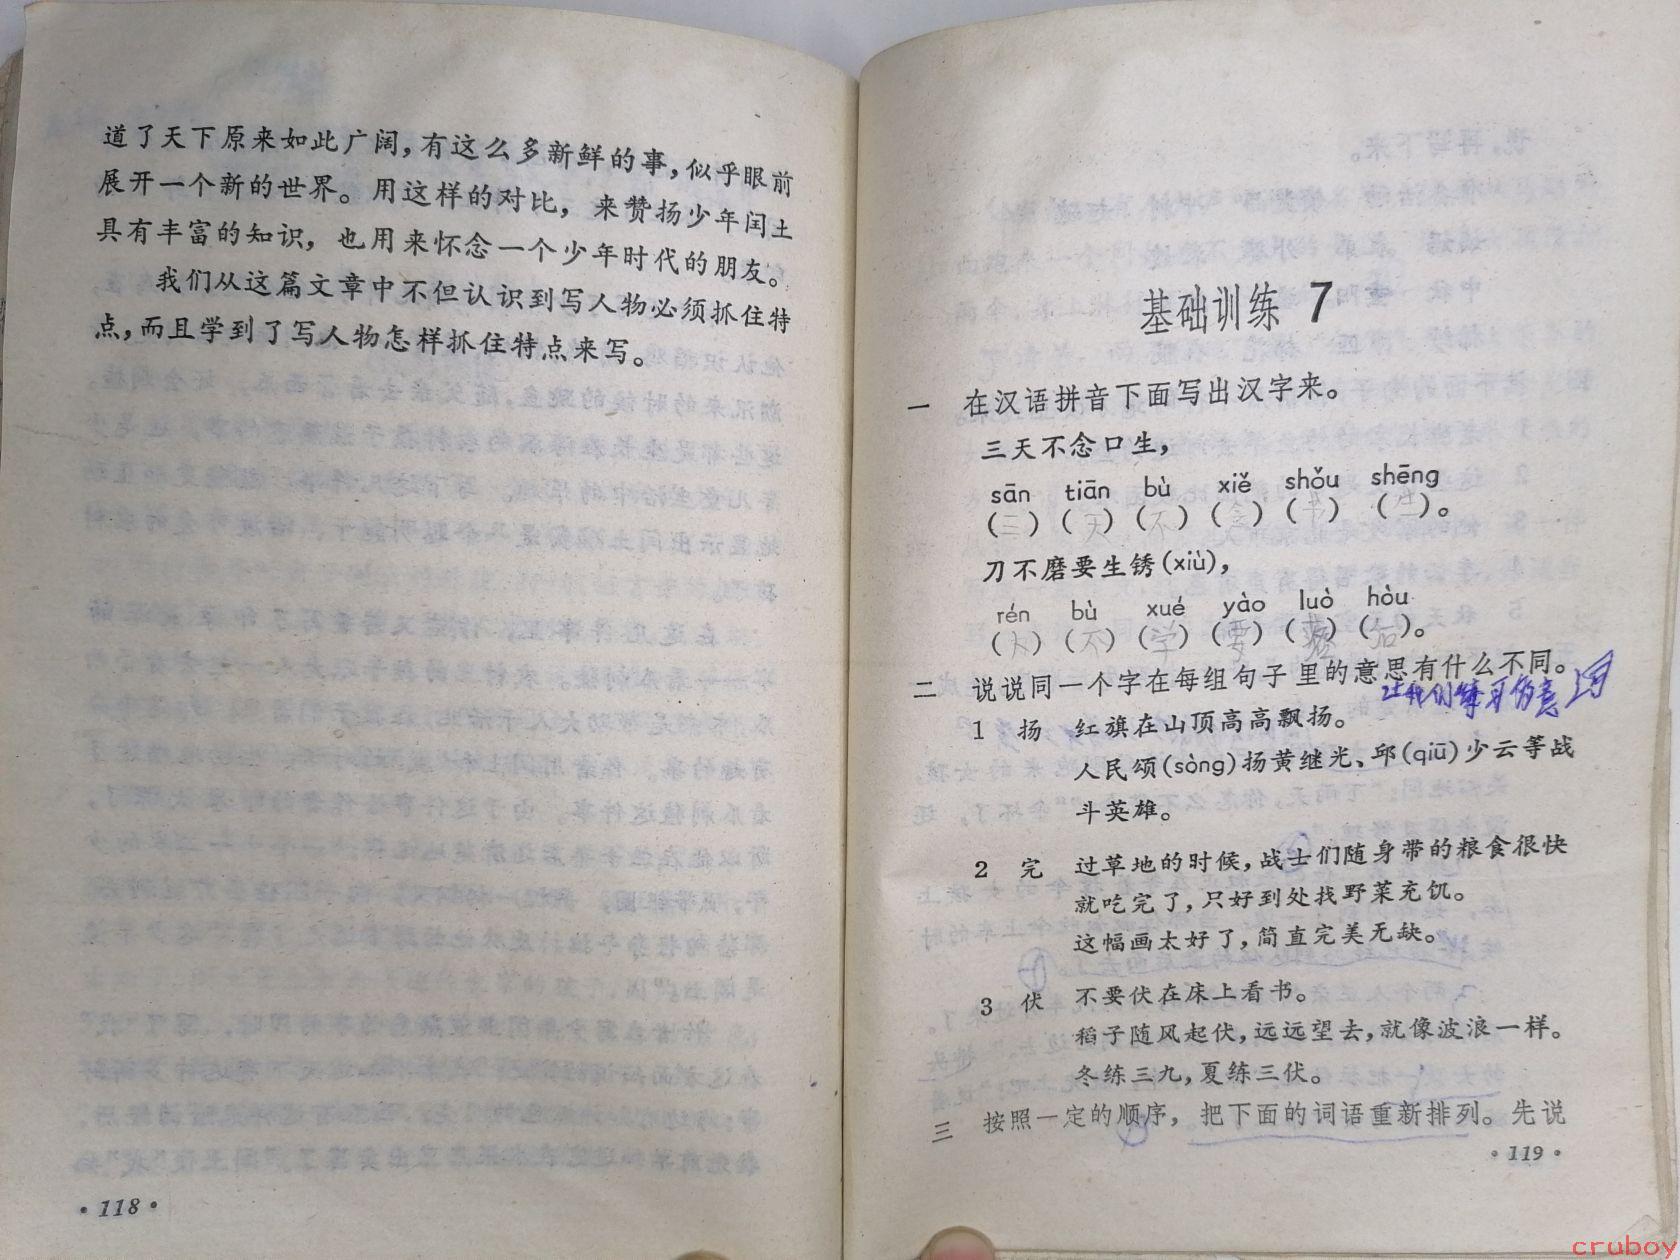 道了天下原来如此广阔，有这么多新鲜的事，似乎眼前
展开一个新的世界。用这样的对比，来赞扬少年闰土
具有丰富的知识，也用来怀念一个少年时代的朋友。
我们从这篇文章中不但认识到写人物必须抓住特
点，而且学到了写人物怎样抓住特点来写。
·118·
基础训练 7
一 在汉语拼音下面写出汉字来。
三天不念口生，
sān tiān bù xiě shǒu shēng
(三)(天)(不)(念)( )(生)。
刀不磨要生锈(xiù)，
rén bù xué yào luò hòu
(人)(不)(学)(要)(落)(后)。
二 说说同一个字在每组句子里的意思有什么不同。
1 扬 红旗在山顶高高飘扬。
人民颂(sòng)扬黄继光、邱(qiū)少云等战
斗英雄。
2 完 过草地的时候，战士们随身带的粮食很快
就吃完了，只好到处找野菜充饥。
这幅画太好了，简直完美无缺。
3 伏 不要伏在床上看书。
稻子随风起伏，远远望去，就像波浪一样。
冬练三九，夏练三伏。
三 按照一定的顺序，把下面的词语重新排列。先说
·119·
cruboy